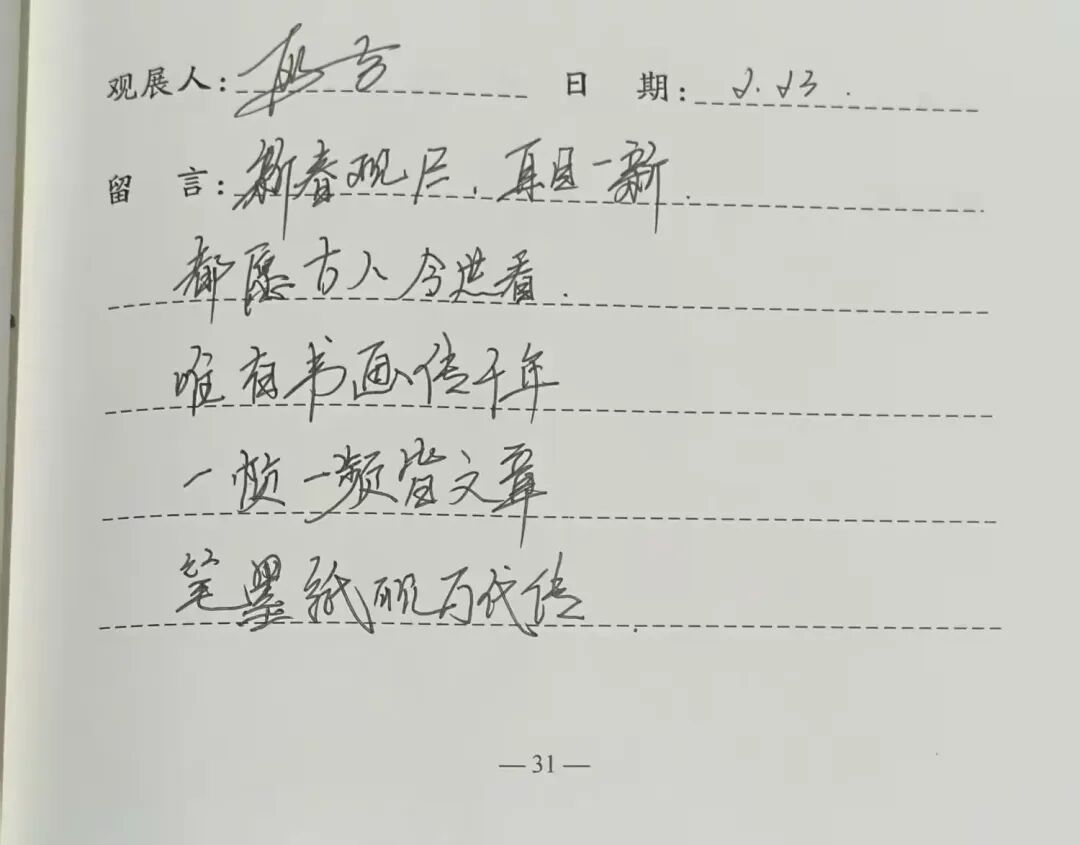 观展人: 日 期: 2.23.
留 言: 新春观展,耳目一新.
都愿古人今世看.
唯有书画传千年
一帧一频皆文章
笔墨纸砚万代传.
— 31 —